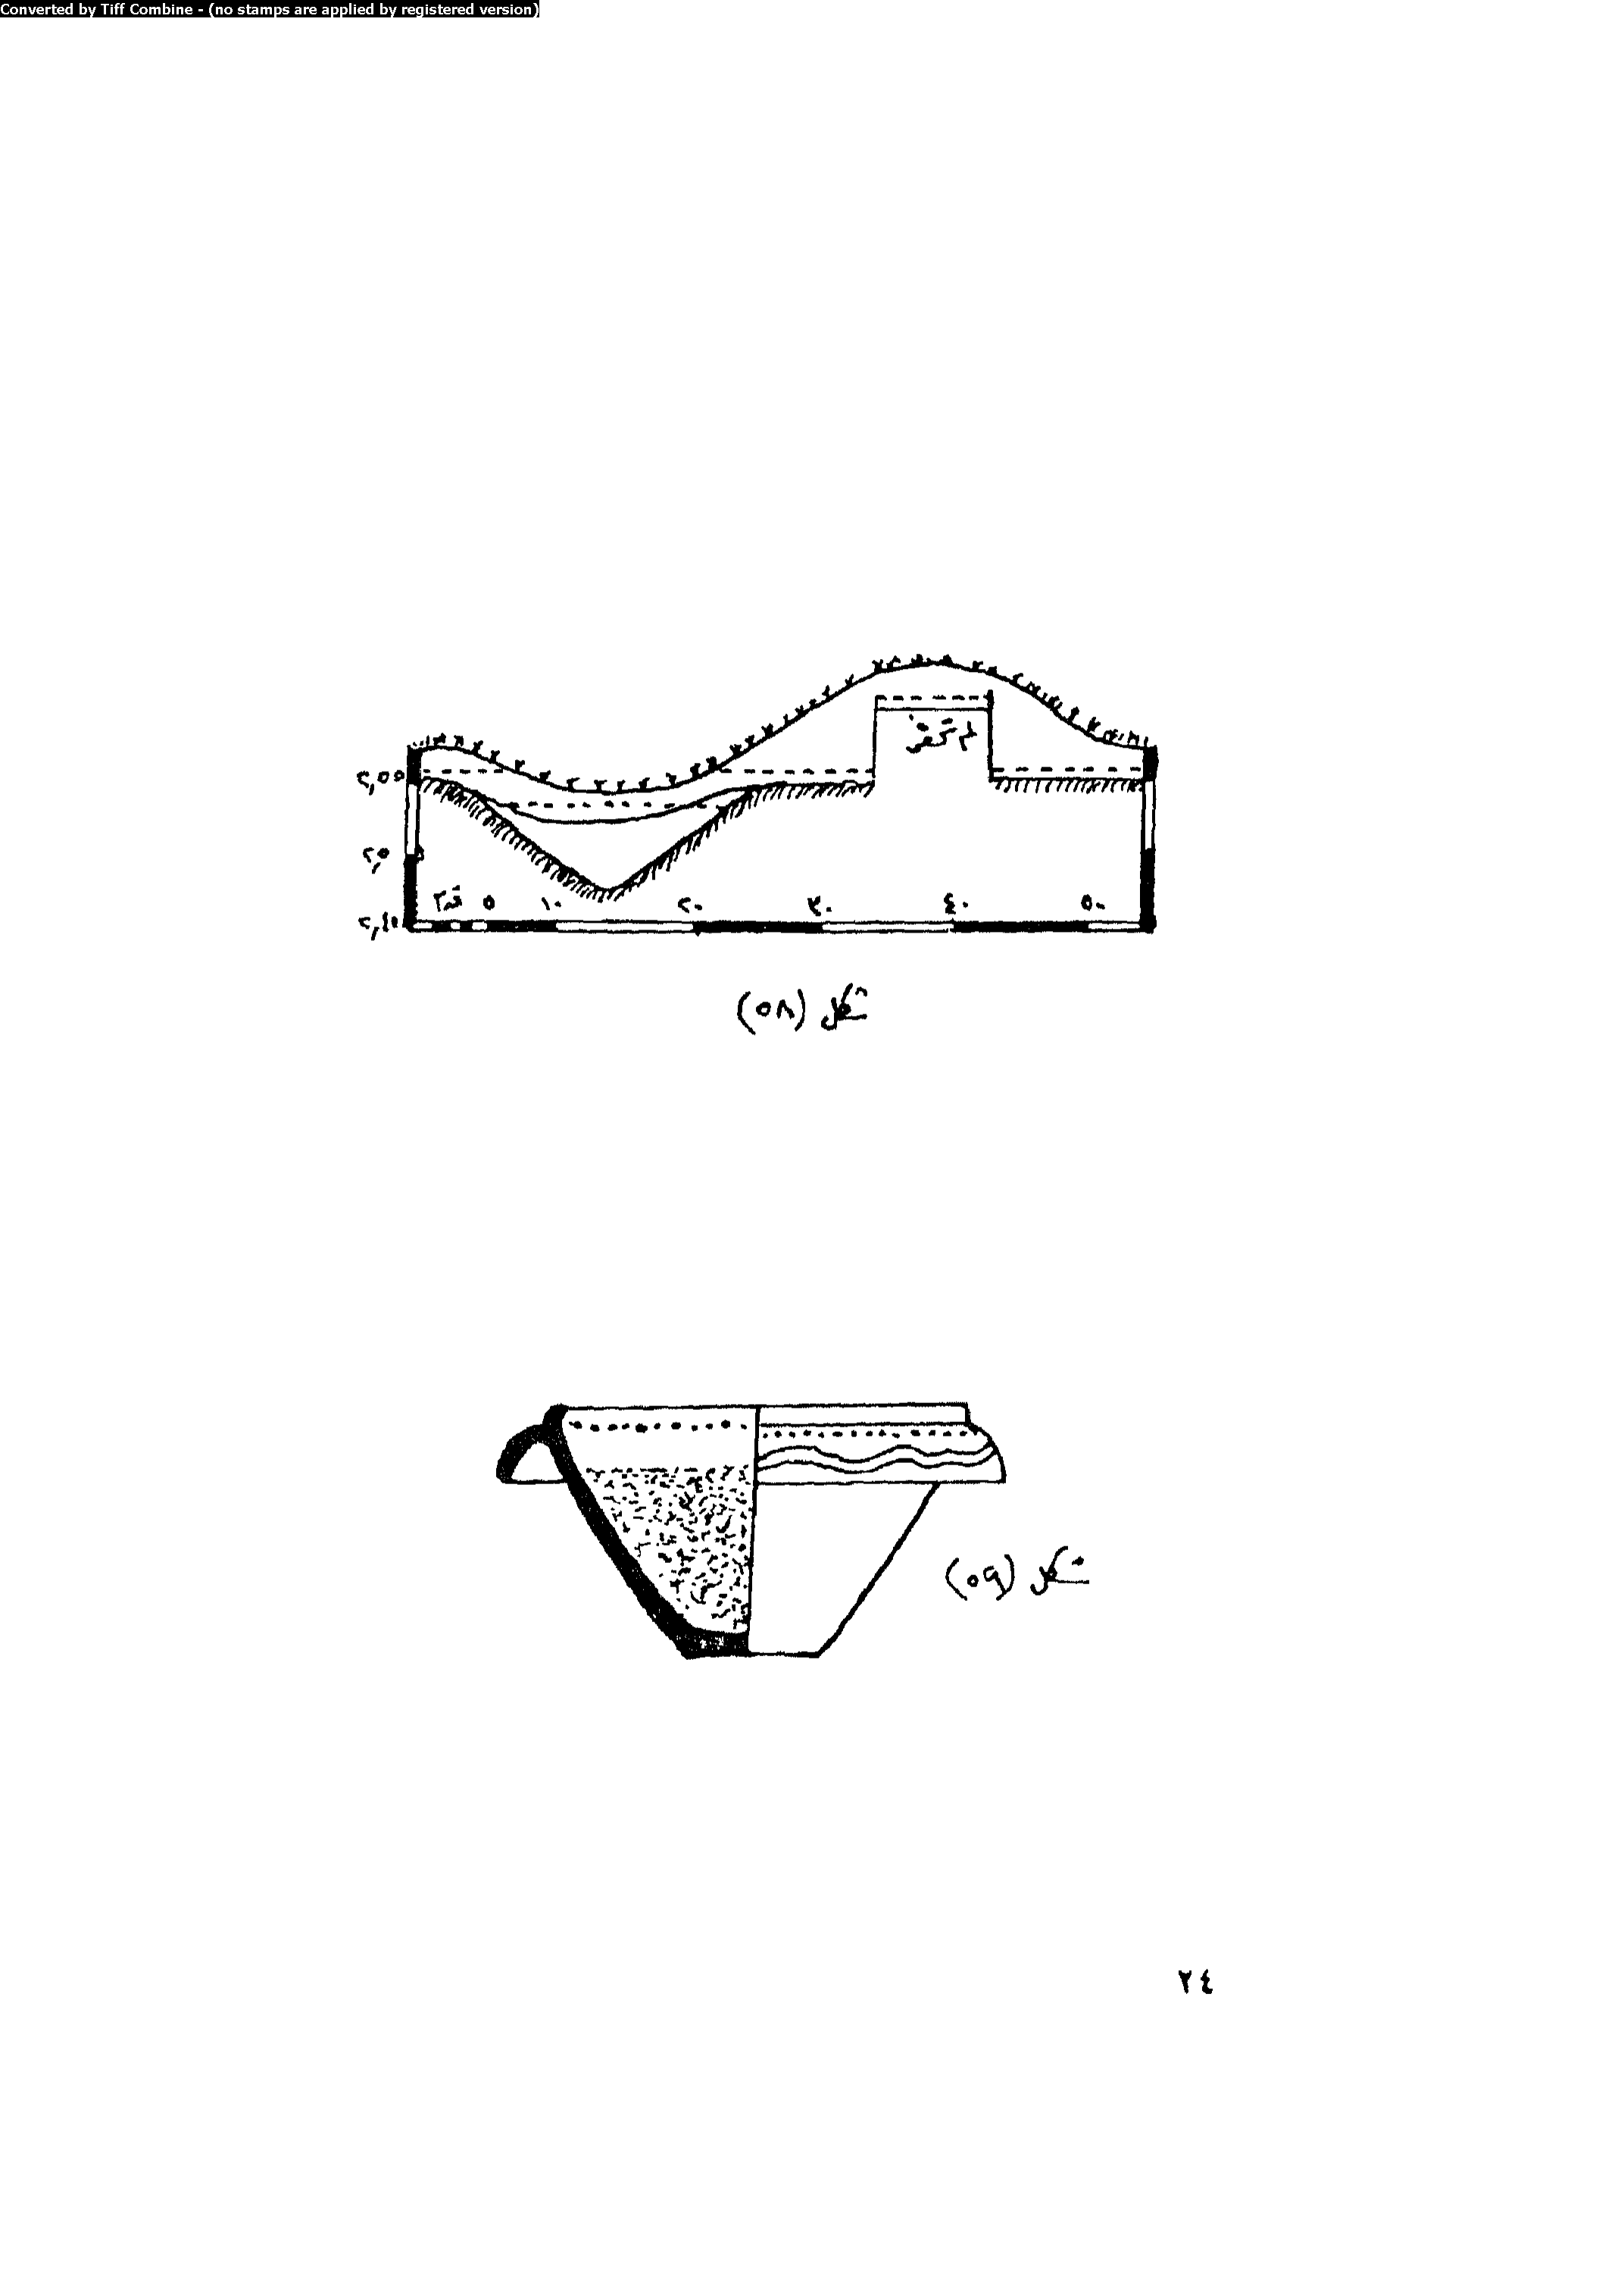 Converted by Tiff Combine - (no stamps are applied by registered version)
لم تحفر
٢,٥٥
٢,٥٠
٢,٤٥
٥ ١٠ ٢٠ ٣٠ ٤٠ ٥٠
شكل (٥٨)
شكل (٥٩)
٢٤